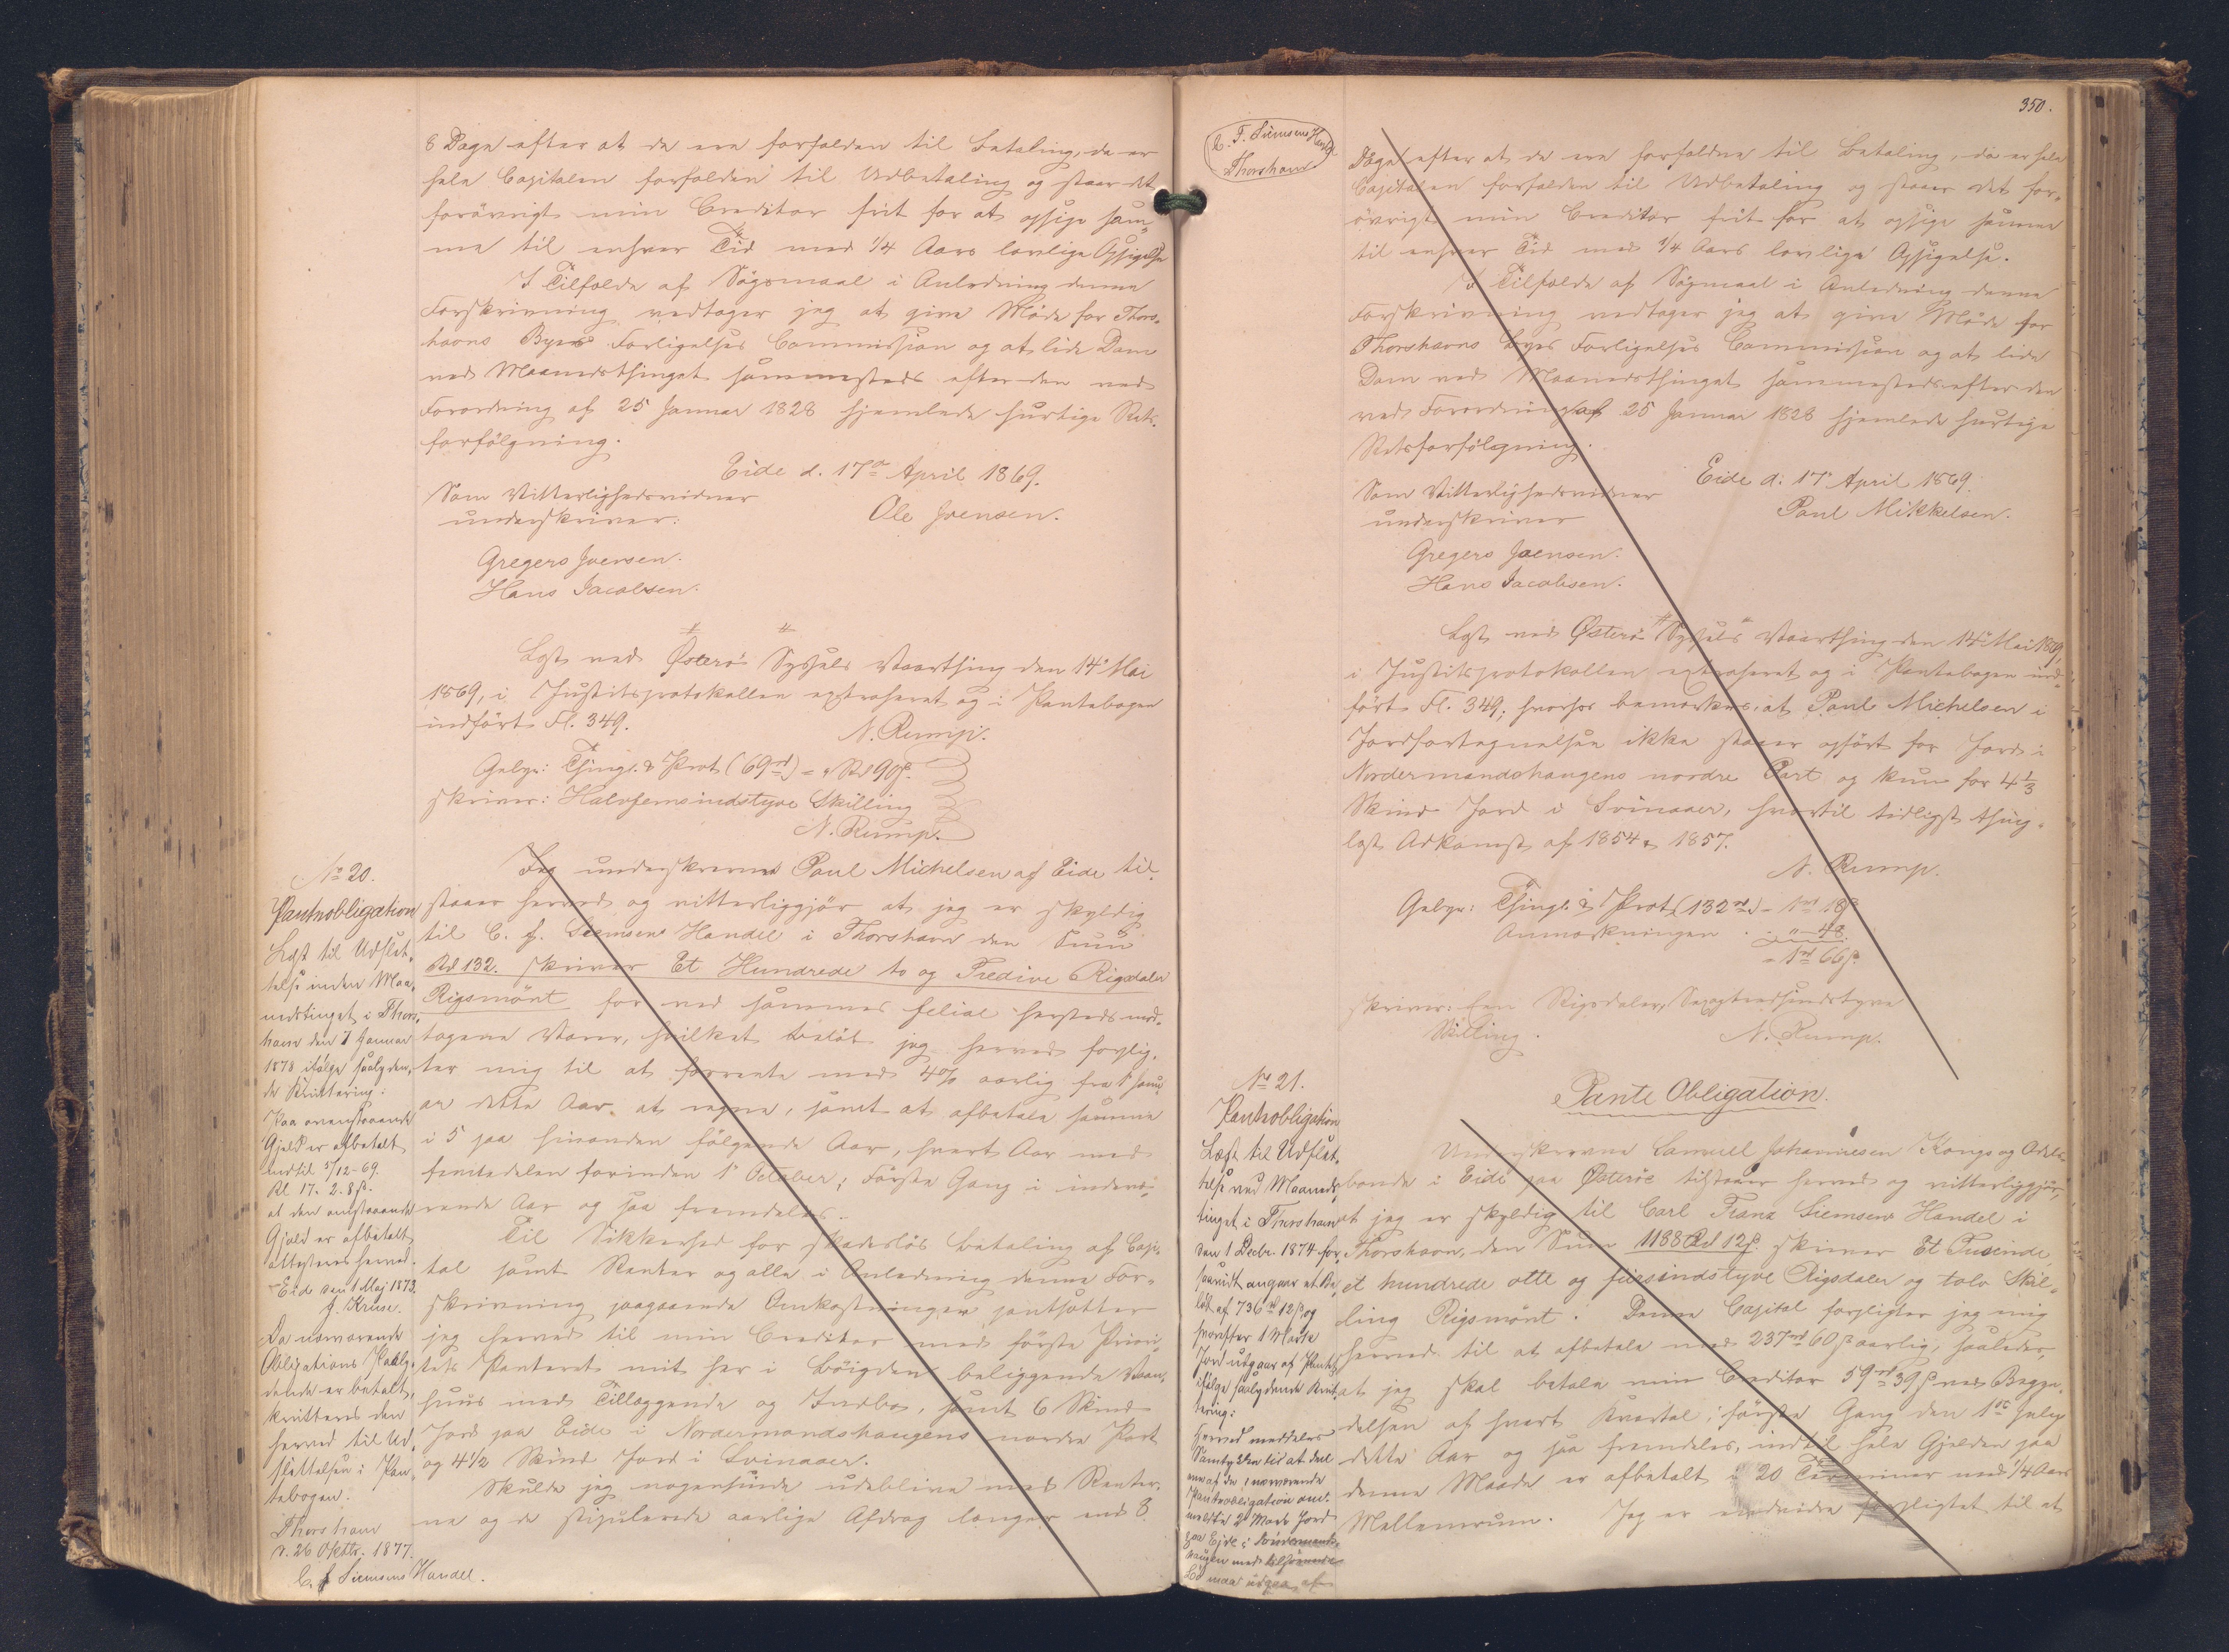 8 Dage efter at de ere forfalden til Betaling, da er
hele Capitalen forfalden til Udbetaling og staar det
forövrigt min Creditor frit for at opsige sam-
me til enhver Tid med 1/4 Aars lovlige Opsigelse
I Tilfælde af Sögsmaal i Anledning denne
Forskrivning vedtager jeg at give Möde for Thors-
havns Byes Forligelses Commission og at lide Dom
ved Maanedsthinget sammesteds efter den ved
Forordning af 25 Januar 1828 hjemlede hurtige Rets-
forfölgning.
Eide d. 17de April 1869.
Som Vitterlighedsvidner
underskriver:
Ole Joensen.
Gregers Joensen.
Hans Jacobsen.
Læst ved Österö Syssels Vaarthing den 14de Mai
1869, i Justitsprotokollen extraheret og i Pantebogen
indfört Fl. 349.
N. Rump.
Gebyr: Thingl. & Prot (69rd) = " Rd 90 ß.
skriver: Halvfemsindstyve Skilling
N. Rump.
No 20.
Pantnobligation
Læst til Udslet-
telse inden Maa-
nedstinget i Thors-
havn den 7 Januar
1878 ifölge saalyden-
de Kvittering:
Paa ovenstaaende
Gjeld er afbetalt
indtil 5/12-69.
Rd 17. 2. 8 ß.
at den omstaaende
Gjæld er afbetalt
attesteres herved.
Eid den 1 Maj 1873.
J. Kruse.
Da nærværende
Obligations Paaly-
dende er betalt,
kvitteres den
herved til Ud-
slettelse i Pan-
tebogen.
Thorshavn
d. 26 Oktbr. 1877.
C. F. Siemsens Handel.
Jeg underskrevne Paul Michelsen af Eide til-
staaer herved og vitterliggjör at jeg er skyldig
til C. F. Siemsens Handel i Thorshavn den Sum
Rd 132. skriver Et Hundrede to og Tredive Rigsdaler
Rigsmönt for ved sammes Filial hersteds mod-
tagene Varer, hvilket Belöb jeg herved forplig-
ter mig til at forrente med 4% aarlig fra 1 Janu-
ar dette Aar at regne, samt at afbetale samme
i 5 paa hinanden fölgende Aar, hvert Aar med
femtedelen forinden 1ste October; Förste Gang i indevæ-
rende Aar og saa fremdeles.
Til Sikkerhed for skadeslös Betaling af Capi-
tal samt Renter og alle i Anledning denne For-
skrivning paagaaende Omkostninger pantsætter
jeg herved til min Creditor med förste Priori-
tets Panteret mit her i Böigden beliggende Vaan-
huus med Tillæggende og Indbo, samt 6 Skind
Jord paa Eide i Nordermandshaugens nordre Part
og 4 1/2 Skind Jord i Svinaaer.
Skulde jeg nogensinde udeblive med Renter-
ne og de stipulerede aarlige Afdrag længer end 8
350.
C. F. Siemsens Handel
Thorshavn
Dage efter at de ere forfaldne til Betaling, da er hele
Capitalen forfalden til Udbetaling og staaer det for-
övrigt min Creditor frit for at opsige samme
til enhver Tid med 1/4 Aars lovlige Opsigelse.
I Tilfælde af Sögsmaal i Anledning denne
Forskrivning vedtager jeg at give Möde for
Thorshavns Byes Forligelses Commission og at lide
Dom ved Maanedsthinget sammesteds efter den
ved Forordning af 25 Januar 1828 hjemlede hurtige
Retsforfölgning.
Eide d: 17de April 1869.
Som Vitterlighedsvidner
underskriver
Paul Mikkelsen.
Gregers Joensen.
Hans Jacobsen.
Læst ved Österö Syssels Vaarthing den 14de Mai 1869,
i Justitsprotokollen extraheret og i Pantebogen ind-
fört Fl. 349; hvorhos bemærkes, at Paul Michelsen i
Jordfortegnelsen ikke staaer opfört for Jord i
Nordermandshaugens nordre Part og kun for 4 1/3
Skind Jord i Svinaaer, hvortil tidligst thing-
læst Adkomst af 1854 & 1857.
N. Rump.
Gebyr: Thingl. & Prot (132rd) - 1rd 18 ß
Anmærkningen - " - 48.
= 1rd 66 ß.
skriver: Een Rigsdaler, Sexogtredsindstyve
Skilling.
N. Rump.
No 21.
Pantnobligation
Læst til Udslet-
telse ved Maaneds-
tinget i Thorshavn
den 1 Decbr. 1874 for-
saavidt angaar et Be-
löb af 736rd 12 ß og
hvorefter 1 Mark
Jord udgaar af Pantet
ifölge saalydende Kvit-
tering:
Herved meddeles
Samtykke til at del
ene af de i nærværende
Pantnobligation om-
meldte 2 Mark Jord
paa Ejde i
haugen med
maa udgaa af
Pante Obligation.
Underskrevne Samuel Johannesen Kongs og Odels-
bonde i Eide paa Österöe tilstaaer herved og vitterliggjör,
at jeg er skyldig til Carl Franz Siemsens Handel i
Thorshavn, den Sum 1188 Rd 12 ß. skriver Et Tusinde
et hundrede otte og fiirsindstyve Rigsdaler og tolv Skil-
ling Rigsmönt. Denne Capital forpligter jeg mig
herved til at afbetale med 237rd 60 ß aarlig, saaledes,
at jeg skal betale min Creditor 59rd 39 ß ved Begyn-
delsen af hvert Kvartal; förste Gang den 1ste July
dette Aar og saa fremdeles, indtil hele Gjelden paa
denne Maade er afbetalt i 20 Terminer med 1/4 Aars
Mellemrum. Jeg er endvidere forpligtet til at